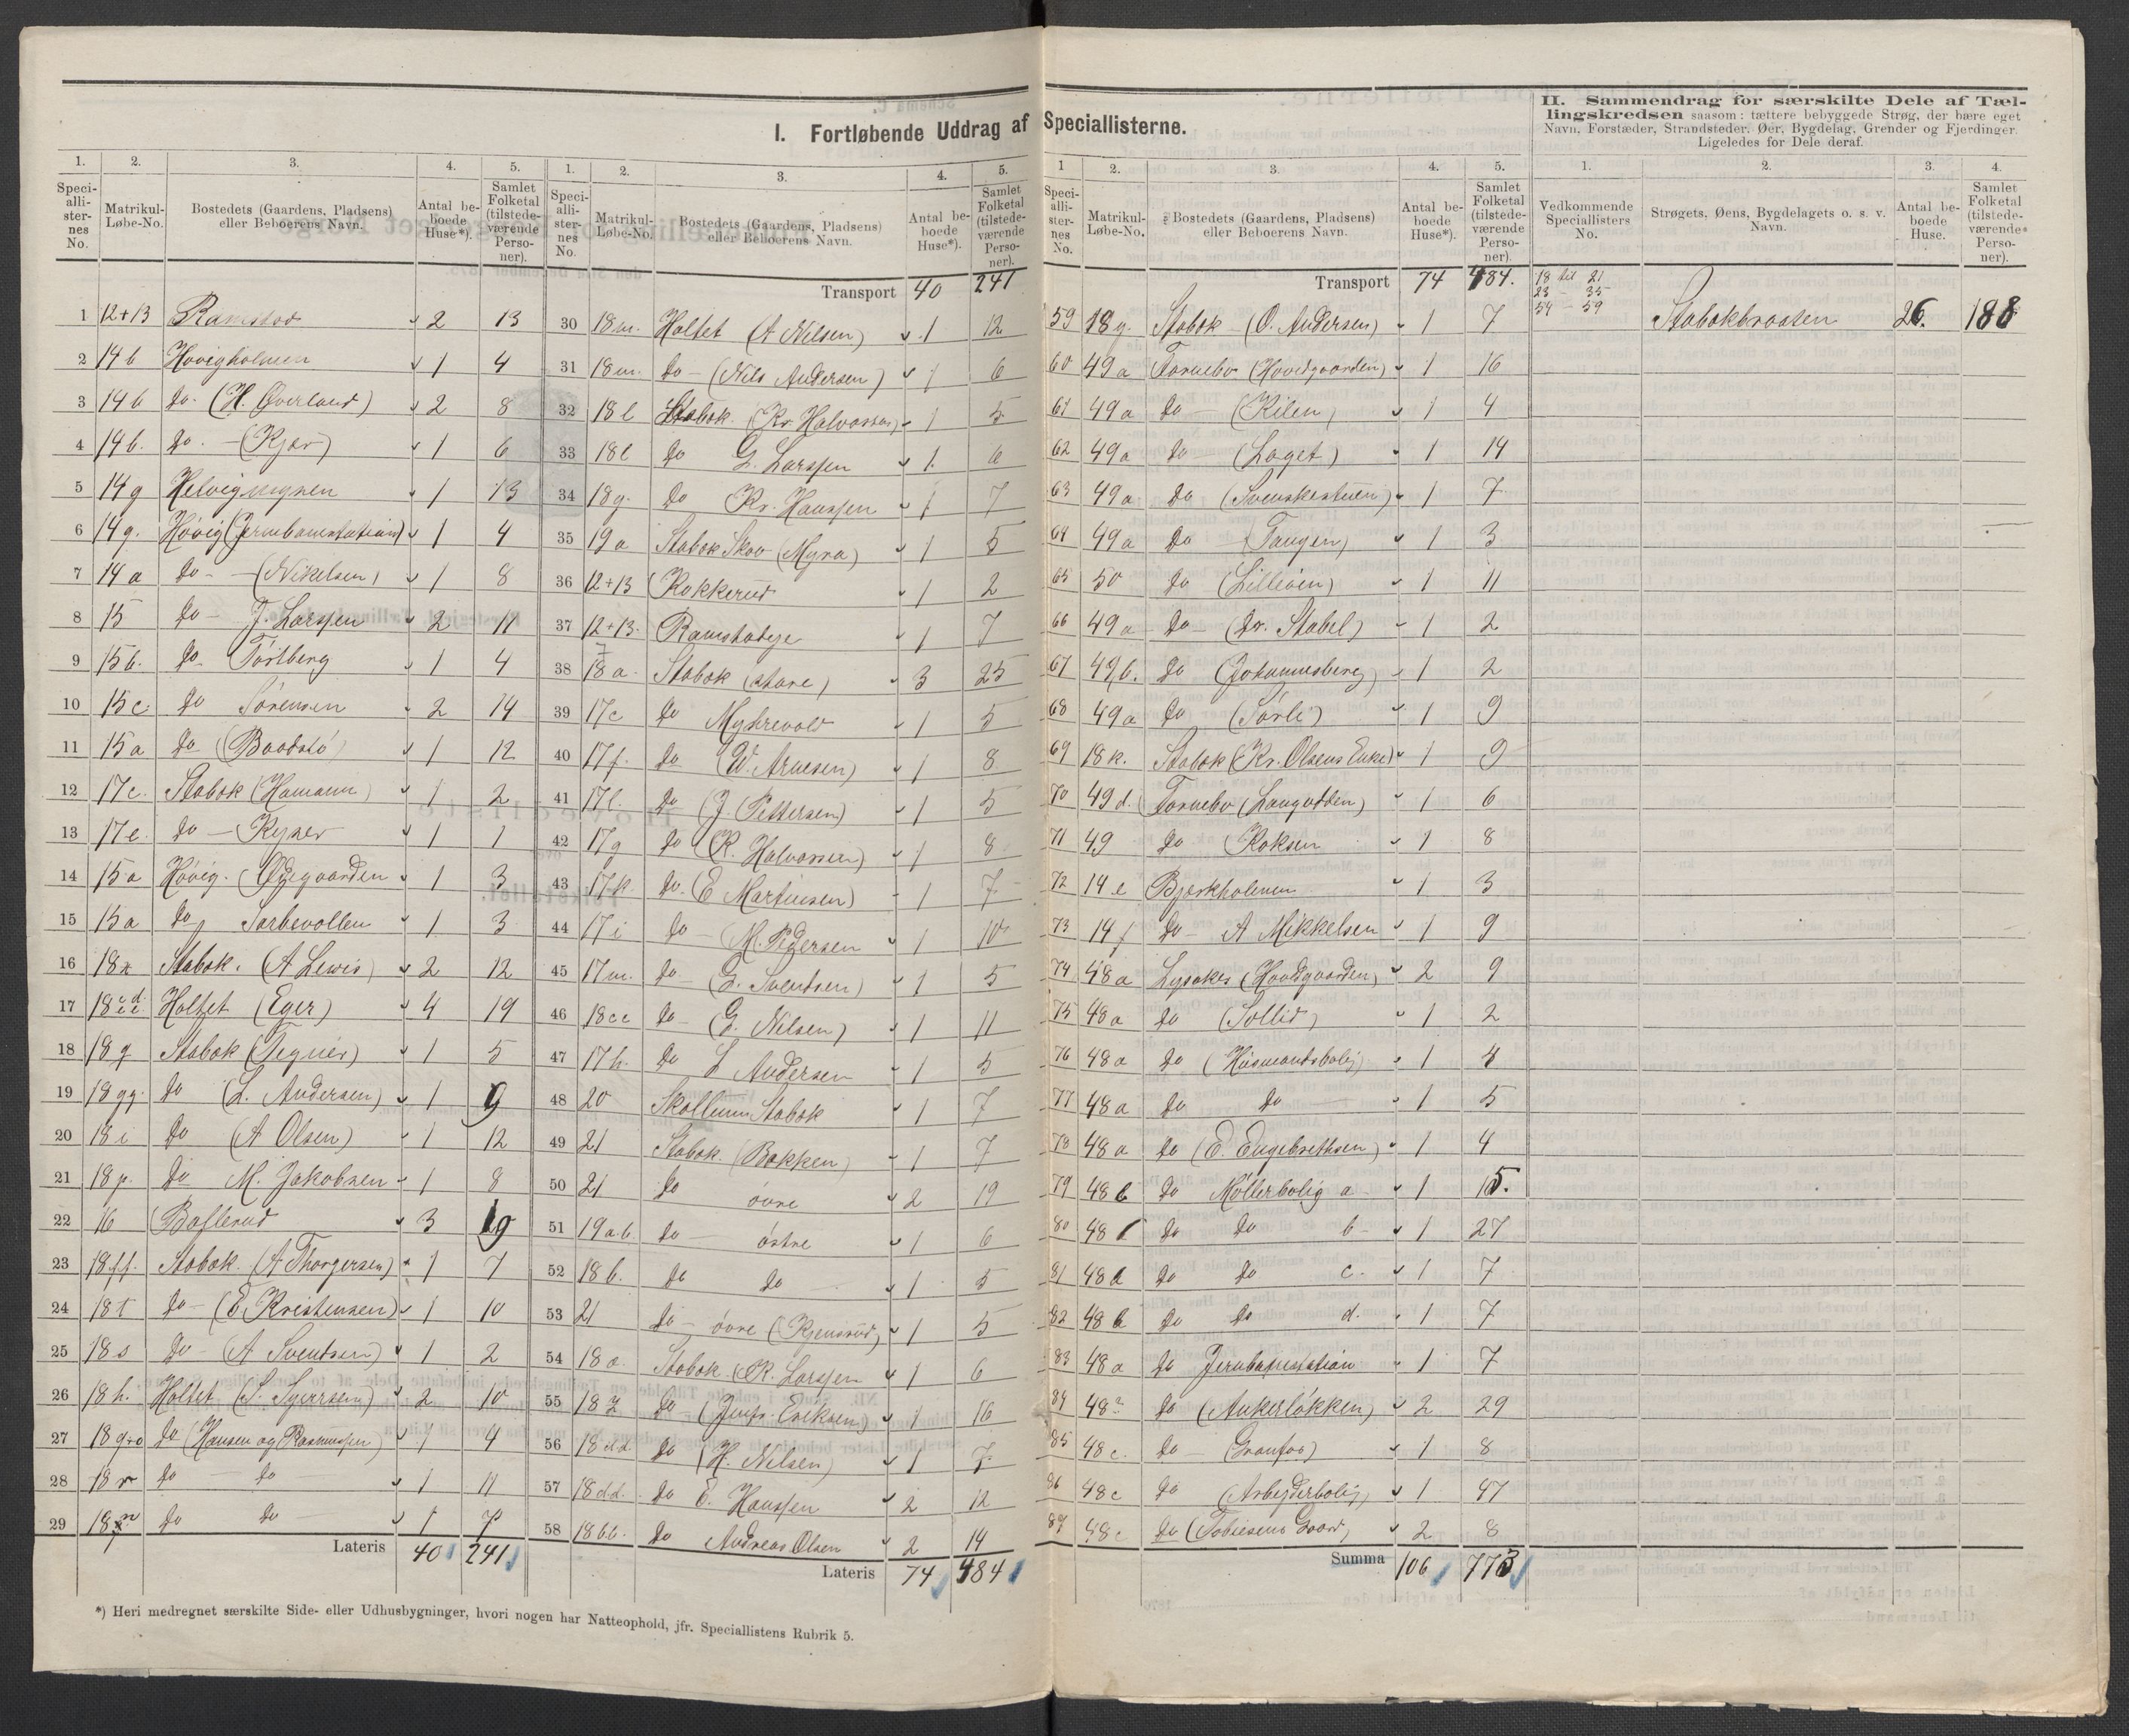 I. Fortløbende Uddrag af Speciallisterne.
II. Sammendrag for særskilte Dele af Tæl-
lingskredsen saasom: tættere bebyggede Strøg, der bære eget
Navn, Forstæder, Strandsteder, Øer, Bygdelag, Grender og Fjerdinger.
Ligeledes for Dele deraf.
1. 2. 3. 4. 5.
Speci-alli-ster-nes No. Matrikul-Løbe-No. Bostedets (Gaardens, Pladsens) eller Beboerens Navn. Antal be-boede Huse*). Samlet Folketal (tilstede-værende Perso-ner).
1 12+13 Ramstad 2 13
2 14b Høvigholmen 1 4
3 14b do. (H. Øverland) 2 8
4 14b. do. - (Kjær) 1 6
5 14g Helvigmyren 1 13
6 14g. Høvig (Jernbanestation) 1 4
7 14a do - (Nikelsen) 1 8
8 15 do - J. Larssen 2 11
9 15b. do Törtberg 1 4
10 15c do Sörensen 2 14
11 15a do (Baadstö) 1 12
12 17c. Stabæk (Hamann) 1 2
13 17e. do - Kyser 1 1
14 15a Høvig. (Ødegaarden 1 3
15 15a do Sarbevollen 1 3
16 18x Stabæk. (A Lewis) 2 12
17 18cd. Holtet (Eger) 4 19
18 18q Stabæk (Tegner) 1 5
19 18gg. do (L. Andersen) 1 9
20 18i do (A Olsen) 1 12
21 18p. do M. Jakobsen 1 8
22 16 Ballerud 3 19
23 18ff. Stabæk. (A Thorgersen) 1 7
24 18t do - (E. Kristensen) 1 10
25 18s do - (A Sventsen) 1 2
26 18h. Holtet (S. Syversen) 2 10
27 18q+o do (Hansen og Rasmussen) 1 4
28 18v do - do 1 11
29 18n do do 1 7
Lateris 40 241
1. 2. 3. 4. 5.
Speci-alli-ster-nes No. Matrikul-Løbe-No. Bostedets (Gaardens, Pladsens) eller Beboerens Navn. Antal be-boede Huse*). Samlet Folketal (tilstede-værende Perso-ner).
Transport 40 241
30 18m. Holtet (A Nilsen) 1 12
31 18m. do - (Nils Andersen) 1 6
32 18l Stabæk. (Kr. Halvorsen) 1 5
33 18l do G. Larssen 1 6
34 18g. do Kr. Hanssen 1 7
35 19a Stabæk Skov (Myra) 1 5
36 12+13 Kokkerud 1 2
37 12+13. Ramstadeje 1 7
38 18a. Stabæk (store) 3 25
39 17c do Myhrevold 1 5
40 17f. do (W. Arnesen) 1 8
41 17l. do (J. Pettersen) 1 5
42 17g do (R. Halvorsen) 1 8
43 17k. do. (E Martinsen) 1 7
44 17i do - M. Pedersen 1 10
45 17m. do - (G. Sventsen) 1 5
46 18cc do - (G. Nilsen) 1 11
47 17h. do L Andersen 1 5
48 20 Skallum Stabæk 1 7
49 21 Stabæk. (Bakken) 1 7
50 21 do övre 2 19
51 19ab do - östre 1 6
52 18b. do do 1 5
53 21 do - övre (Kjensrud) 1 5
54 18a. Stabæk. (R. Larssen 1 6
55 18z do - (Jomfr. Eriksen) 1 16
56 18dd do (H. Nilsen) 1 7
57 18dd. do E. Hanssen 2 12
58 18bb. do Andreas Olsen 2 14
Lateris 74 484
1 2. 3. 4. 5.
Speci-alli-ster-nes No. Matrikul-Løbe-No. Bostedets (Gaardens, Pladsens) eller Beboerens Navn. Antal be-boede Huse*). Samlet Folketal (tilstede-værende Perso-ner).
Transport 74 484.
59 18y. Stabæk - (O. Andersen) 1 7
60 49a Fornebo (Hovedgaarden) 1 16
61 49a do - (Kilen) 1 4
62 49a do - (Laget) 1 14
63 49a do (Svenskestuen) 1 7
64 49a do (Tangen) 1 3
65 50 do (Lilleöen) 1 11
66 49a do - (Dr. Stabel) 1 2
67 49b. do (Johannesberg) 1 2
68 49a do (Sörli) 1 9
69 18k. Stabæk (Kr. Olsens Enke) 1 9
70 49d. Fornebo (Langodden) 1 6
71 49 do Koksen 1 8
72 14e Bjerkholmen 1 3
73 14f do - A Mikkelsen 1 9
74 48a Lysaker (Hovdgaarden) 2 9
75 48a do (Sollid) 1 2
76 48a do (Husmandsbolig) 1 4
77 48a do do 1 5
78 48a do (E. Engebrethsen) 1 4
79 48b do Möllerbolig a 1 15.
80 48b do do b - 1 27
81 48b do do c. 1 7
82 48b do do d. 1 7
83 48a do Jernbanestation 1 7
84 48? do (Ankerlökken) 2 29
85 48c. do - (Granfos) 1 8
86 48c do (Arbejderbolig) 1 47
87 48c do (Tobiesens Gaard) 2 8
Summa 106 773
1. 2. 3. 4.
Vedkommende Speciallisters No. Strøgets, Øens, Bygdelagets o. s. v. Navn. Antal be-boede Huse. Samlet Folketal (tilstede-værende Perso-ner).
18 til 21
23 - 35
54 - 59 Stabækbraaten 26. 188
*) Heri medregnet særskilte Side- eller Udhusbygninger, hvori nogen har Natteophold, jfr. Speciallistens Rubrik 5.